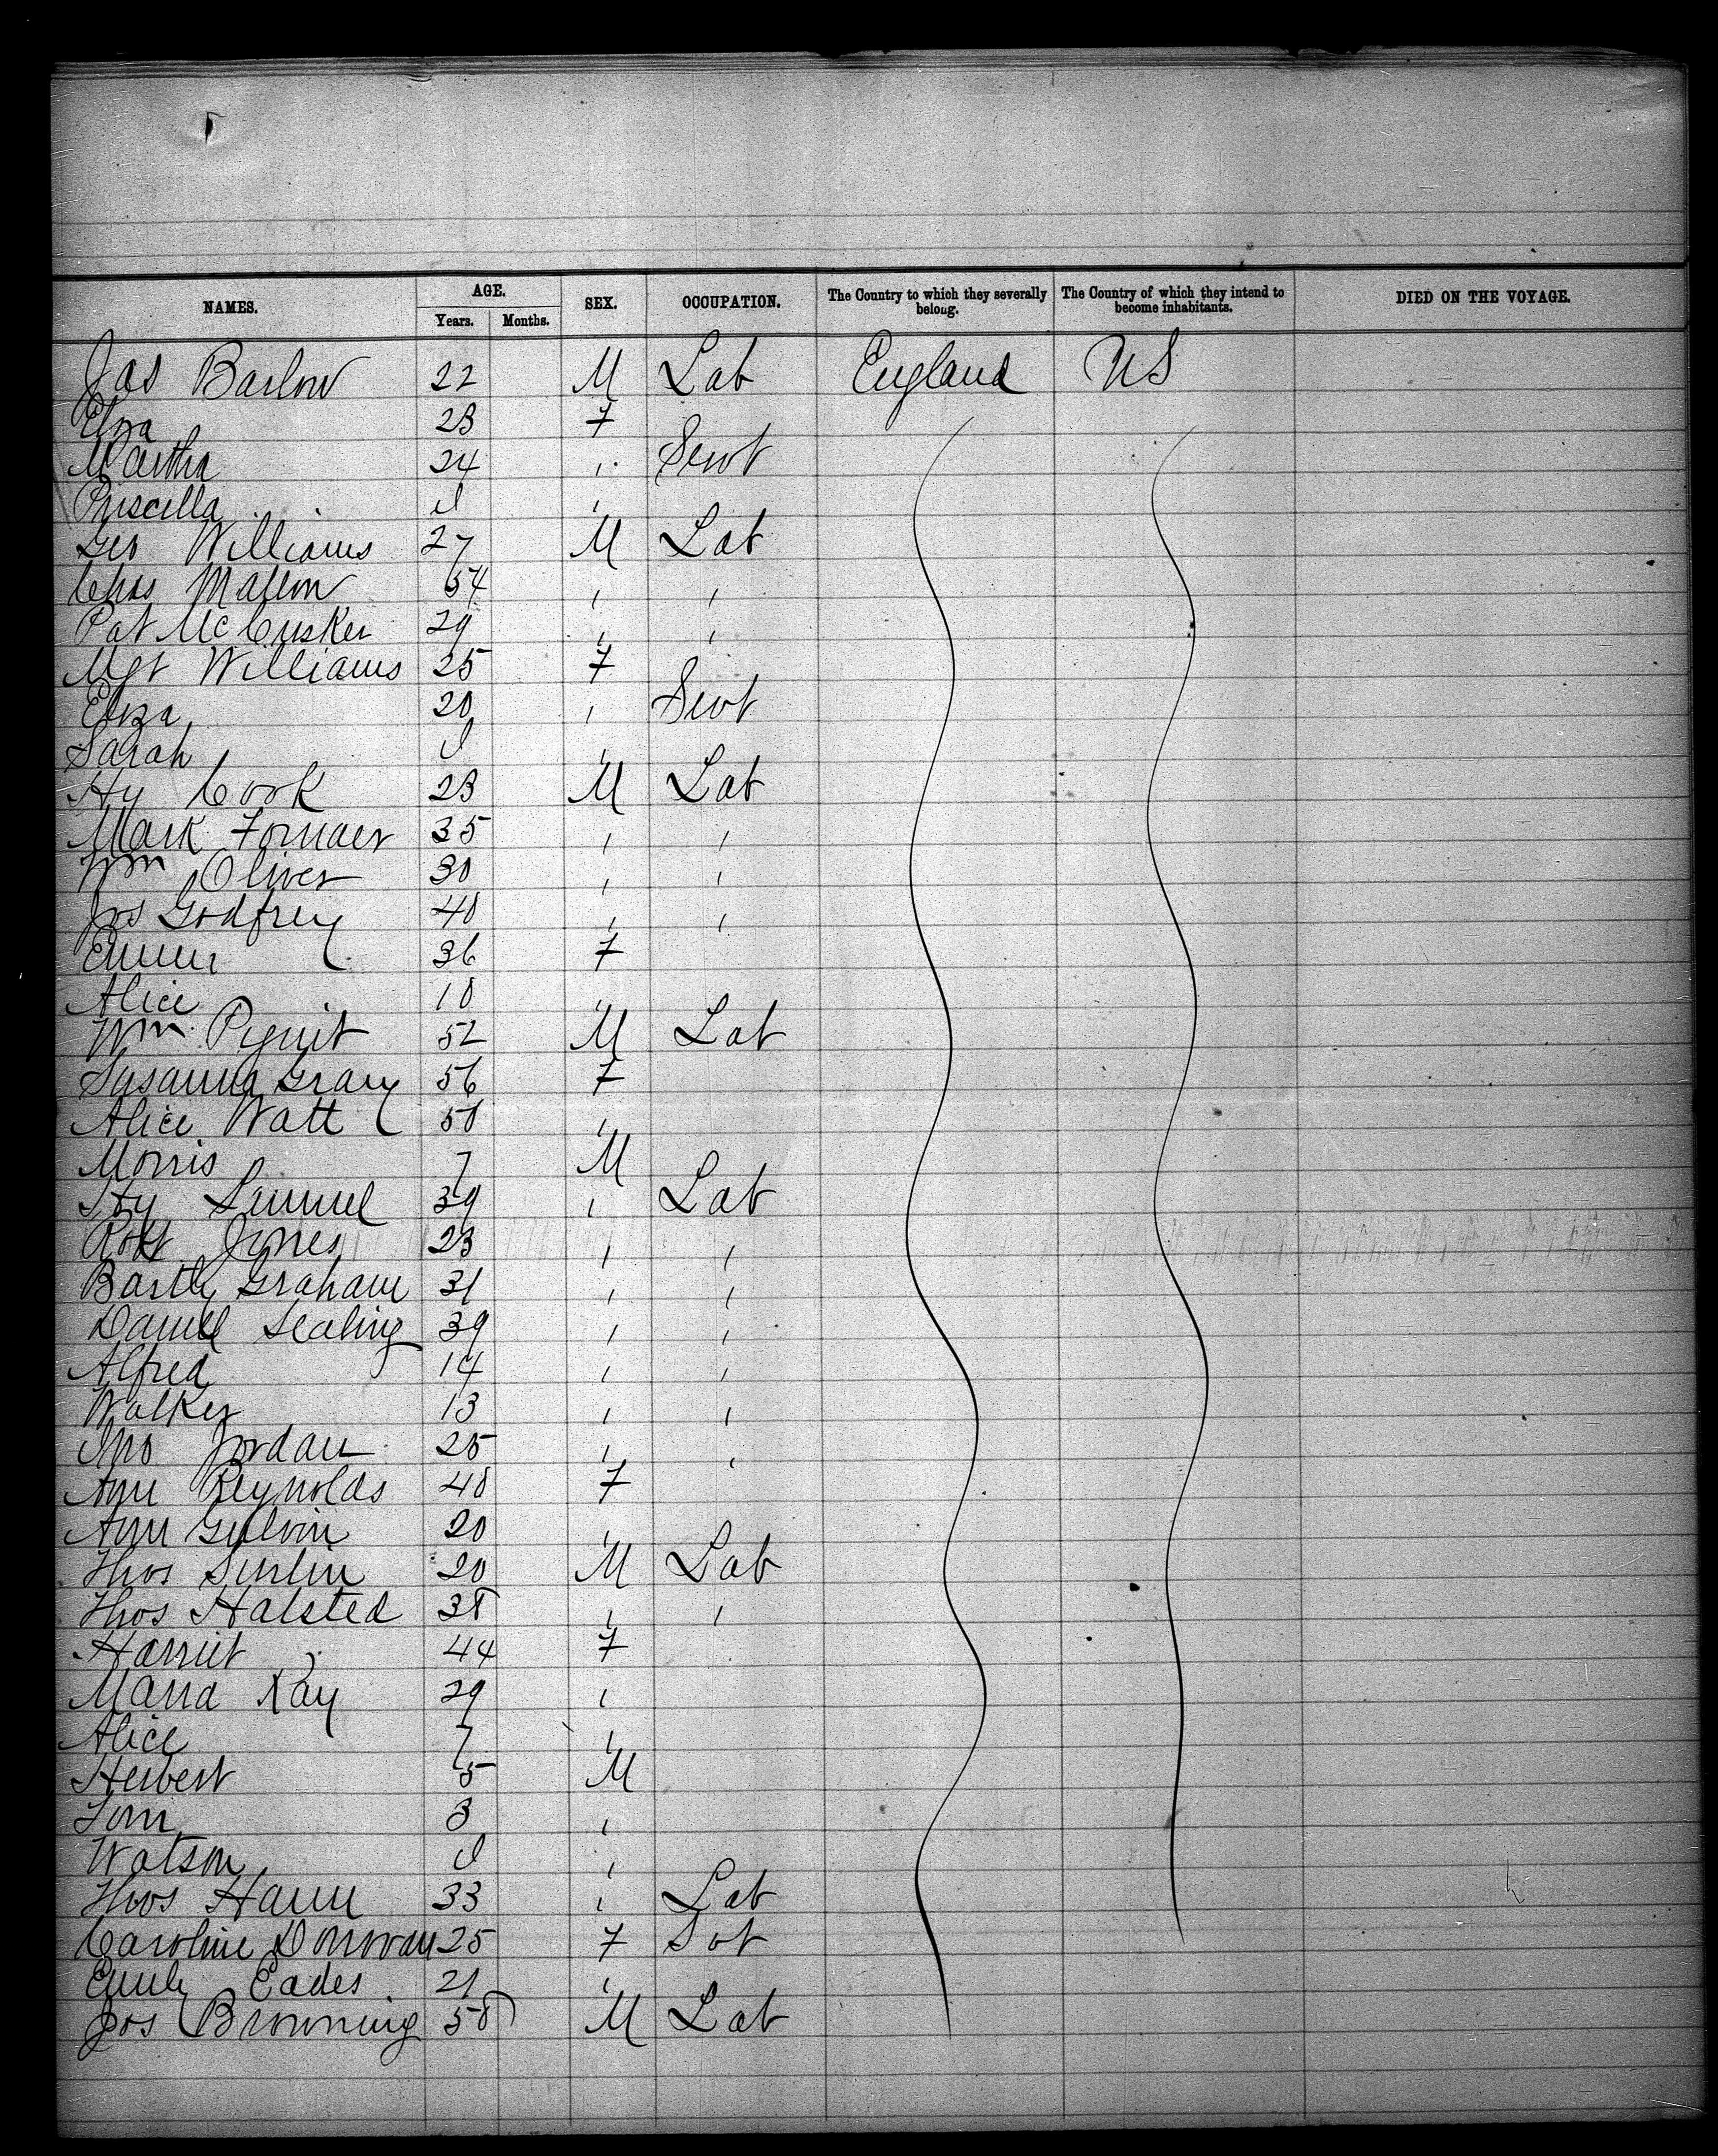 NAMES. AGE. SEX. OCCUPATION. The Country to which they severally belong. The Country of which they intend to become inhabitants. DIED ON THE VOYAGE.
Years. Months.
Jas Barlow 22 M Lab England US
Eliza 23 F
Martha 24 " Servt
Priscilla "
Geo Williams 27 M Lab
Chas Mallon 54 " "
Pat McCusker 29 " "
Mgt Williams 25 F
Eliza 20 " Servt
Sarah "
Hy Cook 23 M Lab
Mark 35 " "
Wm Oliver 30 " "
Jos Godfrey 40 " "
36 F
Alice 10 "
Wm 52 M Lab
Susanna Gray 56 F
Alice Watt 50 "
Morris 7 M
Hy 39 " Lab
Robt Jones 23 " "
Bartly Graham 31 " "
Daniel Sealing 39 " "
Alfred 14 " "
Walker 13 " "
Jno Jordan 25 " "
Ann Reynolds 40 F
Ann 20 "
Thos 20 M Lab
Thos Halsted 38 " "
Harriet 44 F
Maria Kay 29 "
Alice 7 "
Herbert 5 M
Tom 3 "
Watson "
Thos Hann 33 " Lab
Caroline Donovan 25 F Svt
Emily Eades 21 "
Jos Browning 50 M Lab